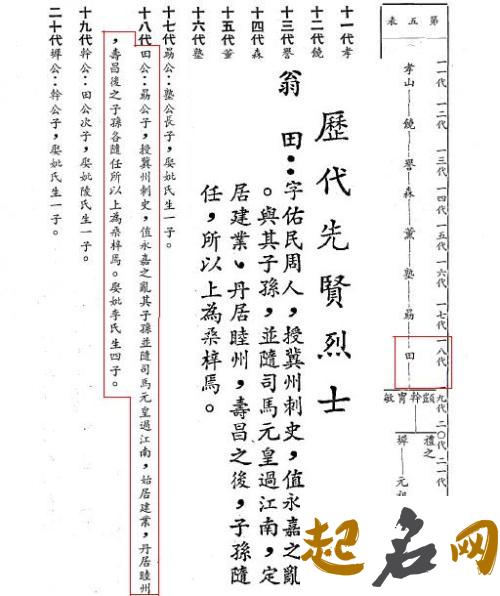 第五表
一一代 一二代 一三代 一四代 一五代 一六代 一七代 一八代 一九代 二〇代 二一代
孝山—饒—譽—森—薰—塾—勗—田
顯幹胄敏
禮之
樨—元
歷代先賢烈士
翁 田：字佑民周人，授冀州刺史，值永嘉之亂
。與其子孫，並隨司馬元皇過江南，定
居建業、丹居睦州，壽昌之後，子孫隨
任，所以上為桑梓焉。
十一代孝
十二代饒
十三代譽
十四代森
十五代薰
十六代塾
十七代勗公：塾公長子，娶妣氏生一子。
十八代田公：勗公子，授冀州刺史，值永嘉之亂其子孫並隨司馬元皇過江南，始居建業，丹居睦州
，壽昌後之子孫各隨任所以上為桑梓焉。娶妣李氏生四子。
十九代幹公：田公次子，娶妣陵氏生一子。
二十代樨公：幹公子，娶妣氏生一子。
起名网